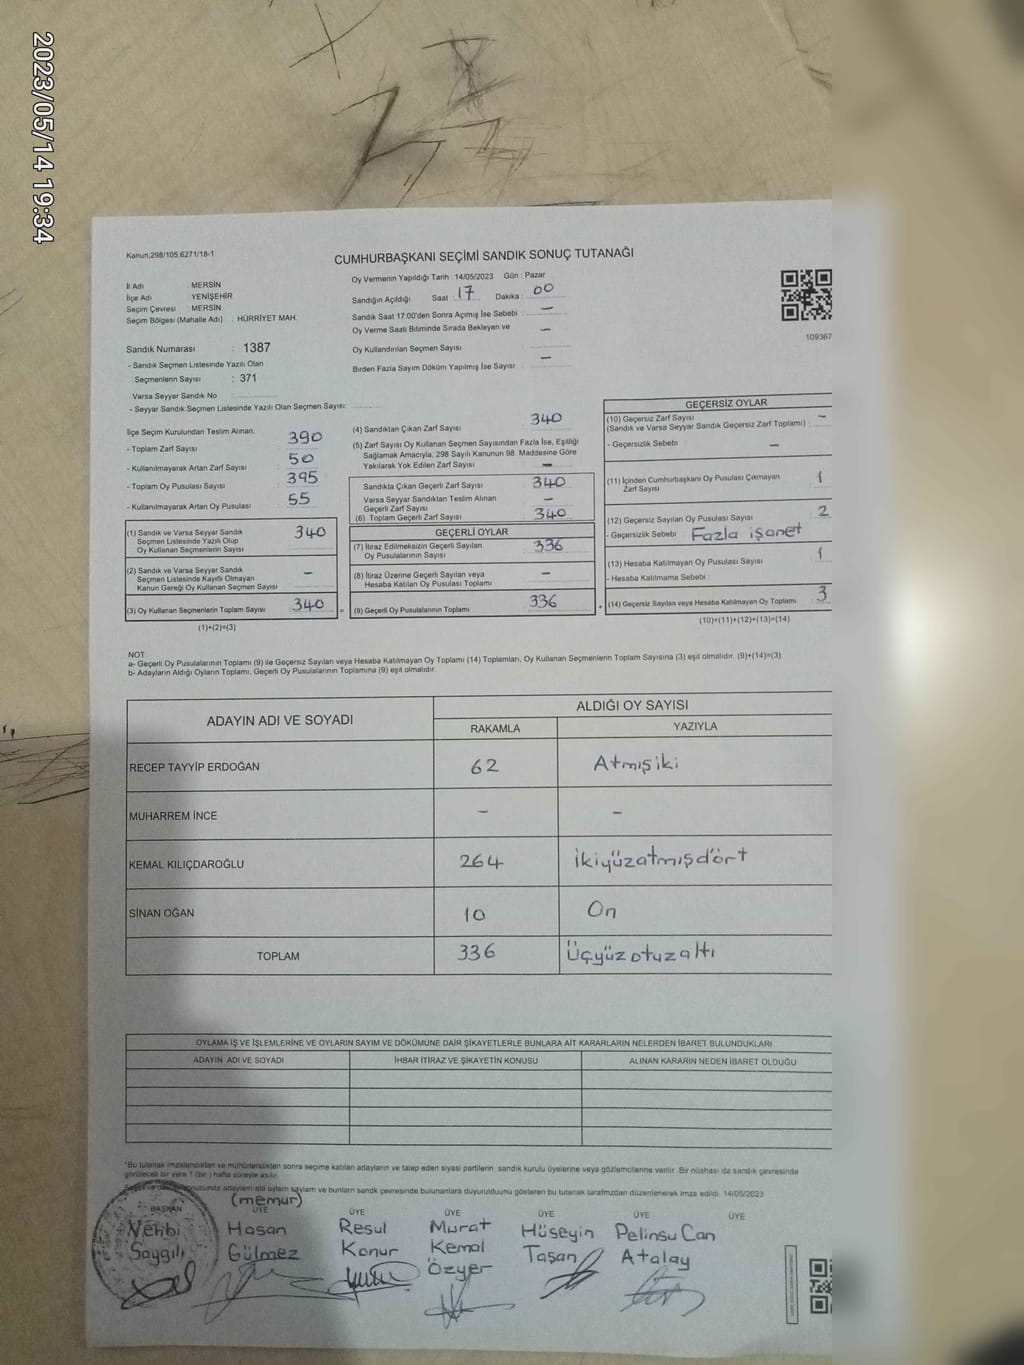 2023/05/14 19:34
Kanun:298/105.6271/18-1
CUMHURBAŞKANI SEÇİMİ SANDIK SONUÇ TUTANAĞI
İl Adı : MERSİN
İlçe Adı : YENİŞEHİR
Seçim Çevresi : MERSİN
Seçim Bölgesi (Mahalle Adı) : HÜRRİYET MAH.
Sandık Numarası : 1387
- Sandık Seçmen Listesinde Yazılı Olan
Seçmenlerin Sayısı : 371
Varsa Seyyar Sandık No
- Seyyar Sandık Seçmen Listesinde Yazılı Olan Seçmen Sayısı:
Oy Vermenin Yapıldığı Tarih : 14/05/2023 Gün : Pazar
Sandığın Açıldığı Saat : 17 Dakika : 00
Sandık Saat 17.00'den Sonra Açımış İse Sebebi : -
Oy Verme Saati Bitiminde Sırada Bekleyen ve -
Oy Kullandırılan Seçmen Sayısı
Birden Fazla Sayım Döküm Yapılmış İse Sayısı : -
109367
İlçe Seçim Kurulundan Teslim Alınan:
- Toplam Zarf Sayısı 390
- Kullanılmayarak Artan Zarf Sayısı 50
- Toplam Oy Pusulası Sayısı 395
- Kullanılmayarak Artan Oy Pusulası 55
(1) Sandık ve Varsa Seyyar Sandık 340
Seçmen Listesinde Yazılı Olup
Oy Kullanan Seçmenlerin Sayısı
(2) Sandık ve Varsa Seyyar Sandık -
Seçmen Listesinde Kayıtlı Olmayan
Kanun Gereği Oy Kullanan Seçmen Sayısı
(3) Oy Kullanan Seçmenlerin Toplam Sayısı 340 =
(1)+(2)=(3)
(4) Sandıktan Çıkan Zarf Sayısı 340
(5) Zarf Sayısı Oy Kullanan Seçmen Sayısından Fazla İse, Eşitliği
Sağlamak Amacıyla, 298 Sayılı Kanunun 98. Maddesine Göre
Yakılarak Yok Edilen Zarf Sayısı -
Sandıkta Çıkan Geçerli Zarf Sayısı 340
Varsa Seyyar Sandıktan Teslim Alınan -
Geçerli Zarf Sayısı
(6) Toplam Geçerli Zarf Sayısı 340
GEÇERLİ OYLAR
(7) İtiraz Edilmeksizin Geçerli Sayılan 336
Oy Pusulalarının Sayısı
(8) İtiraz Üzerine Geçerli Sayılan veya -
Hesaba Katılan Oy Pusulası Toplamı
(9) Geçerli Oy Pusulalarının Toplamı 336 +
GEÇERSİZ OYLAR
(10) Geçersiz Zarf Sayısı -
(Sandık ve Varsa Seyyar Sandık Geçersiz Zarf Toplamı) :
- Geçersizlik Sebebi : -
(11) İçinden Cumhurbaşkanı Oy Pusulası Çıkmayan 1
Zarf Sayısı
(12) Geçersiz Sayılan Oy Pusulası Sayısı 2
- Geçersizlik Sebebi Fazla işaret
(13) Hesaba Katılmayan Oy Pusulası Sayısı 1
- Hesaba Katılmama Sebebi :
(14) Geçersiz Sayılan veya Hesaba Katılmayan Oy Toplamı 3
(10)+(11)+(12)+(13)=(14)
NOT:
a- Geçerli Oy Pusulalarının Toplamı (9) ile Geçersiz Sayılan veya Hesaba Katılmayan Oy Toplamı (14) Toplamları, Oy Kullanan Seçmenlerin Toplam Sayısına (3) eşit olmalıdır. (9)+(14)=(3)
b- Adayların Aldığı Oyların Toplamı, Geçerli Oy Pusulalarının Toplamına (9) eşit olmalıdır.
ADAYIN ADI VE SOYADI ALDIĞI OY SAYISI
RAKAMLA YAZIYLA
RECEP TAYYİP ERDOĞAN 62 Atmışiki
MUHARREM İNCE - -
KEMAL KILIÇDAROĞLU 264 ikiyüzatmışdört
SİNAN OĞAN 10 On
TOPLAM 336 Üçyüzotuzaltı
OYLAMA İŞ VE İŞLEMLERİNE VE OYLARIN SAYIM VE DÖKÜMÜNE DAİR ŞİKAYETLERLE BUNLARA AİT KARARLARIN NELERDEN İBARET BULUNDUKLARI
ADAYIN ADI VE SOYADI İHBAR İTİRAZ VE ŞİKAYETİN KONUSU ALINAN KARARIN NEDEN İBARET OLDUĞU
*Bu tutanak imzalandıktan ve mühürlendikten sonra seçime katılan adayların ve talep eden siyasi partilerin, sandık kurulu üyelerine veya gözlemcilerine verilir. Bir nüshası da sandık çevresinde
görülecek bir yere 1 (bir) hafta süreyle asılır.
sonunda adayların aldı oyların sayılarını ve bunların sandık çevresinde bulunanlara duyurulduğunu gösteren bu tutanak tarafımızdan düzenlenerek imza edildi. 14/05/2023
(memur)
BAŞKAN ÜYE ÜYE ÜYE ÜYE ÜYE ÜYE
Vehbi Hasan Resul Murat Hüseyin Pelinsu Can
Saygılı Gülmez Konur Kemal Taşan Atalay
Özyer